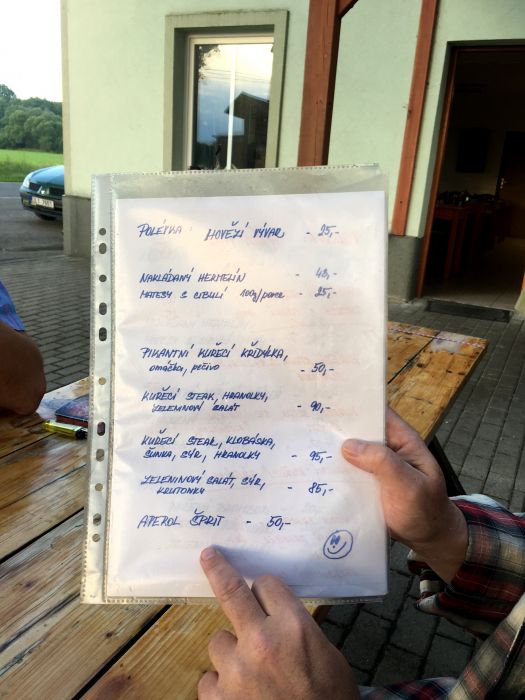 POLÉVKA: HOVĚZÍ VÝVAR - 25,-
NAKLÁDANÝ HERMELÍN - 49,-
MATESY S CIBULÍ 100g/porce - 25,-
PIKANTNÍ KUŘECÍ KŘÍDÝLKA,
omáčka, pečivo - 50,-
KUŘECÍ STEAK, HRANOLKY,
ZELENINOVÝ SALÁT - 90,-
KUŘECÍ STEAK, KLOBÁSKA,
ŠUNKA, SÝR, HRANOLKY - 95,-
ZELENINOVÝ SALÁT, SÝR,
KRUTONKY - 85,-
APEROL ŠPRIT - 50,-